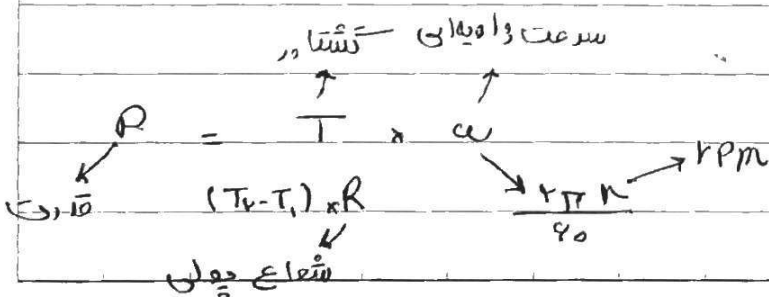 سرعت زاویه‌ای گشتاور
P = T × ω
قدرت (T₂-T₁) × R ۲πn/۶۰ rpm
شعاع پولی